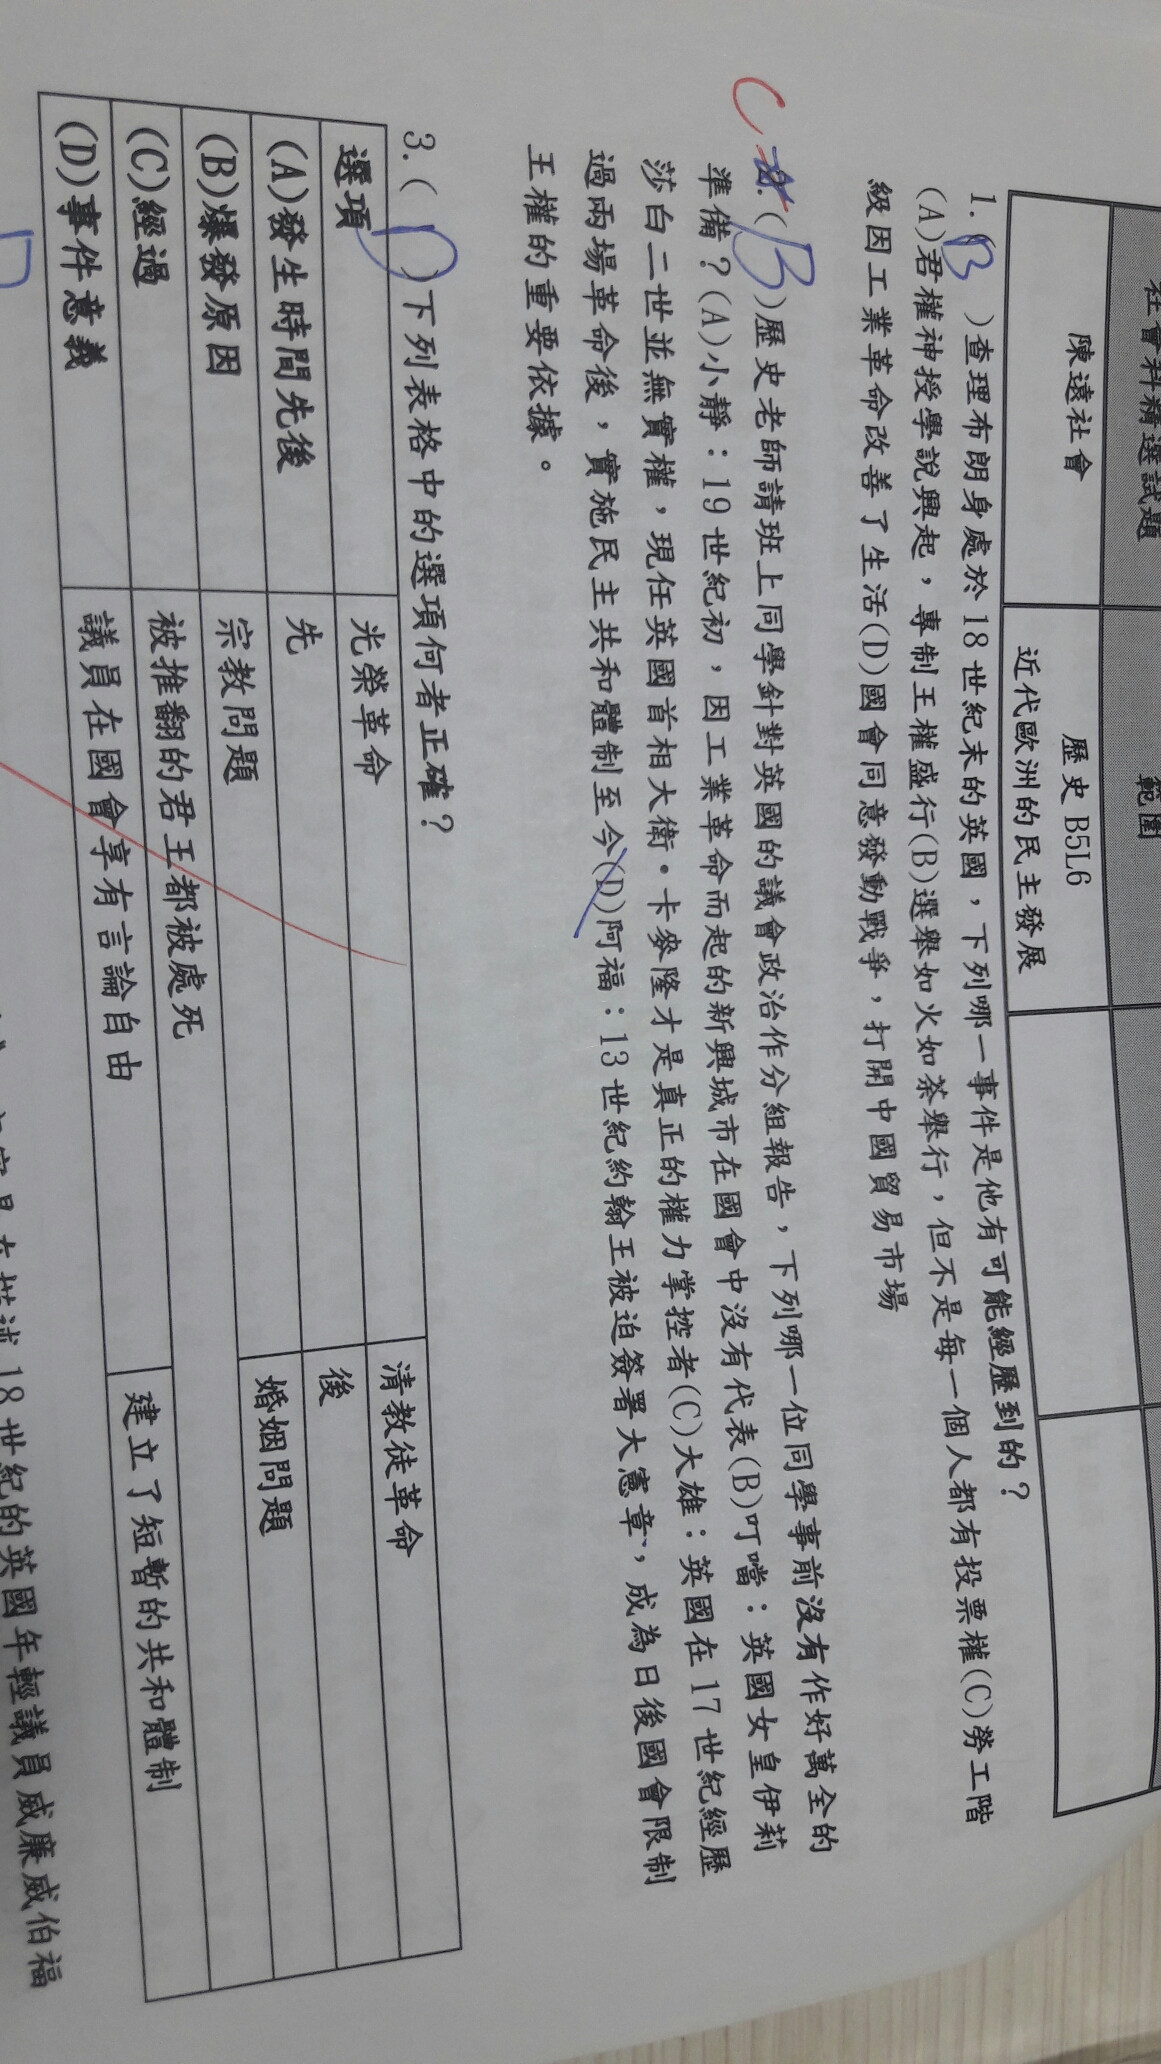 社會科精選試題
範圍
陳遠社會
歷史 B5L6
近代歐洲的民主發展
1.(B)查理布朗身處於 18 世紀末的英國，下列哪一事件是他有可能經歷到的？
(A)君權神授學說興起，專制王權盛行(B)選舉如火如荼舉行，但不是每一個人都有投票權(C)勞工階
級因工業革命改善了生活(D)國會同意發動戰爭，打開中國貿易市場
C
2.(B)歷史老師請班上同學針對英國的議會政治作分組報告，下列哪一位同學事前沒有作好萬全的
準備？(A)小靜：19 世紀初，因工業革命而起的新興城市在國會中沒有代表(B)叮噹：英國女皇伊莉
莎白二世並無實權，現任英國首相大衛·卡麥隆才是真正的權力掌控者(C)大雄：英國在 17 世紀經歷
過兩場革命後，實施民主共和體制至今(D)阿福：13 世紀約翰王被迫簽署大憲章，成為日後國會限制
王權的重要依據。
3.(D)下列表格中的選項何者正確？
選項 光榮革命 清教徒革命
(A)發生時間先後 先 後
(B)爆發原因 宗教問題 婚姻問題
(C)經過 被推翻的君王都被處死
(D)事件意義 議員在國會享有言論自由 建立了短暫的共和體制
18 世紀的英國年輕議員威廉威伯福